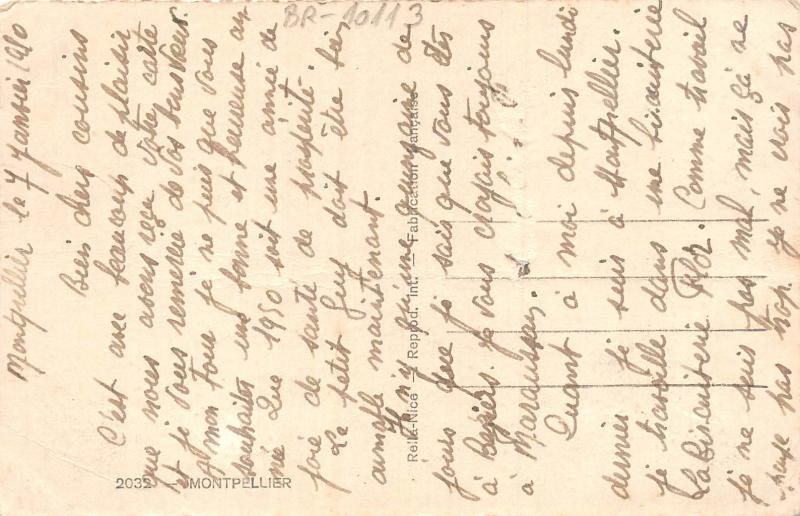 BR-10113
Montpellier le 7 Janvier 1950
Bien chers cousins
C'est avec beaucoup de plaisir
que nous avons reçu votre carte
et je vous remercie de vos bons vœux.
A mon tour je ne puis que vous
souhaiter une bonne et heureuse an
née. Que 1950 soit une année de
joie de santé de prospérité.
Le petit Guy doit être bien
aimable maintenant.
Il n'y a qu'une quinzaine de
jours que je sais que vous êtes
à Béziers. Je vous croyais toujours
à Maraussan.
Quant à moi depuis lundi
dernier je suis à Montpellier.
je travaille dans une biscuiterie
La Biscuiterie Comme travail
je ne suis pas mal, mais ça ne
pas trop. Je ne crois pas
Rella-Nice — Reprod. Int. — Fabrication Française
2032 — MONTPELLIER